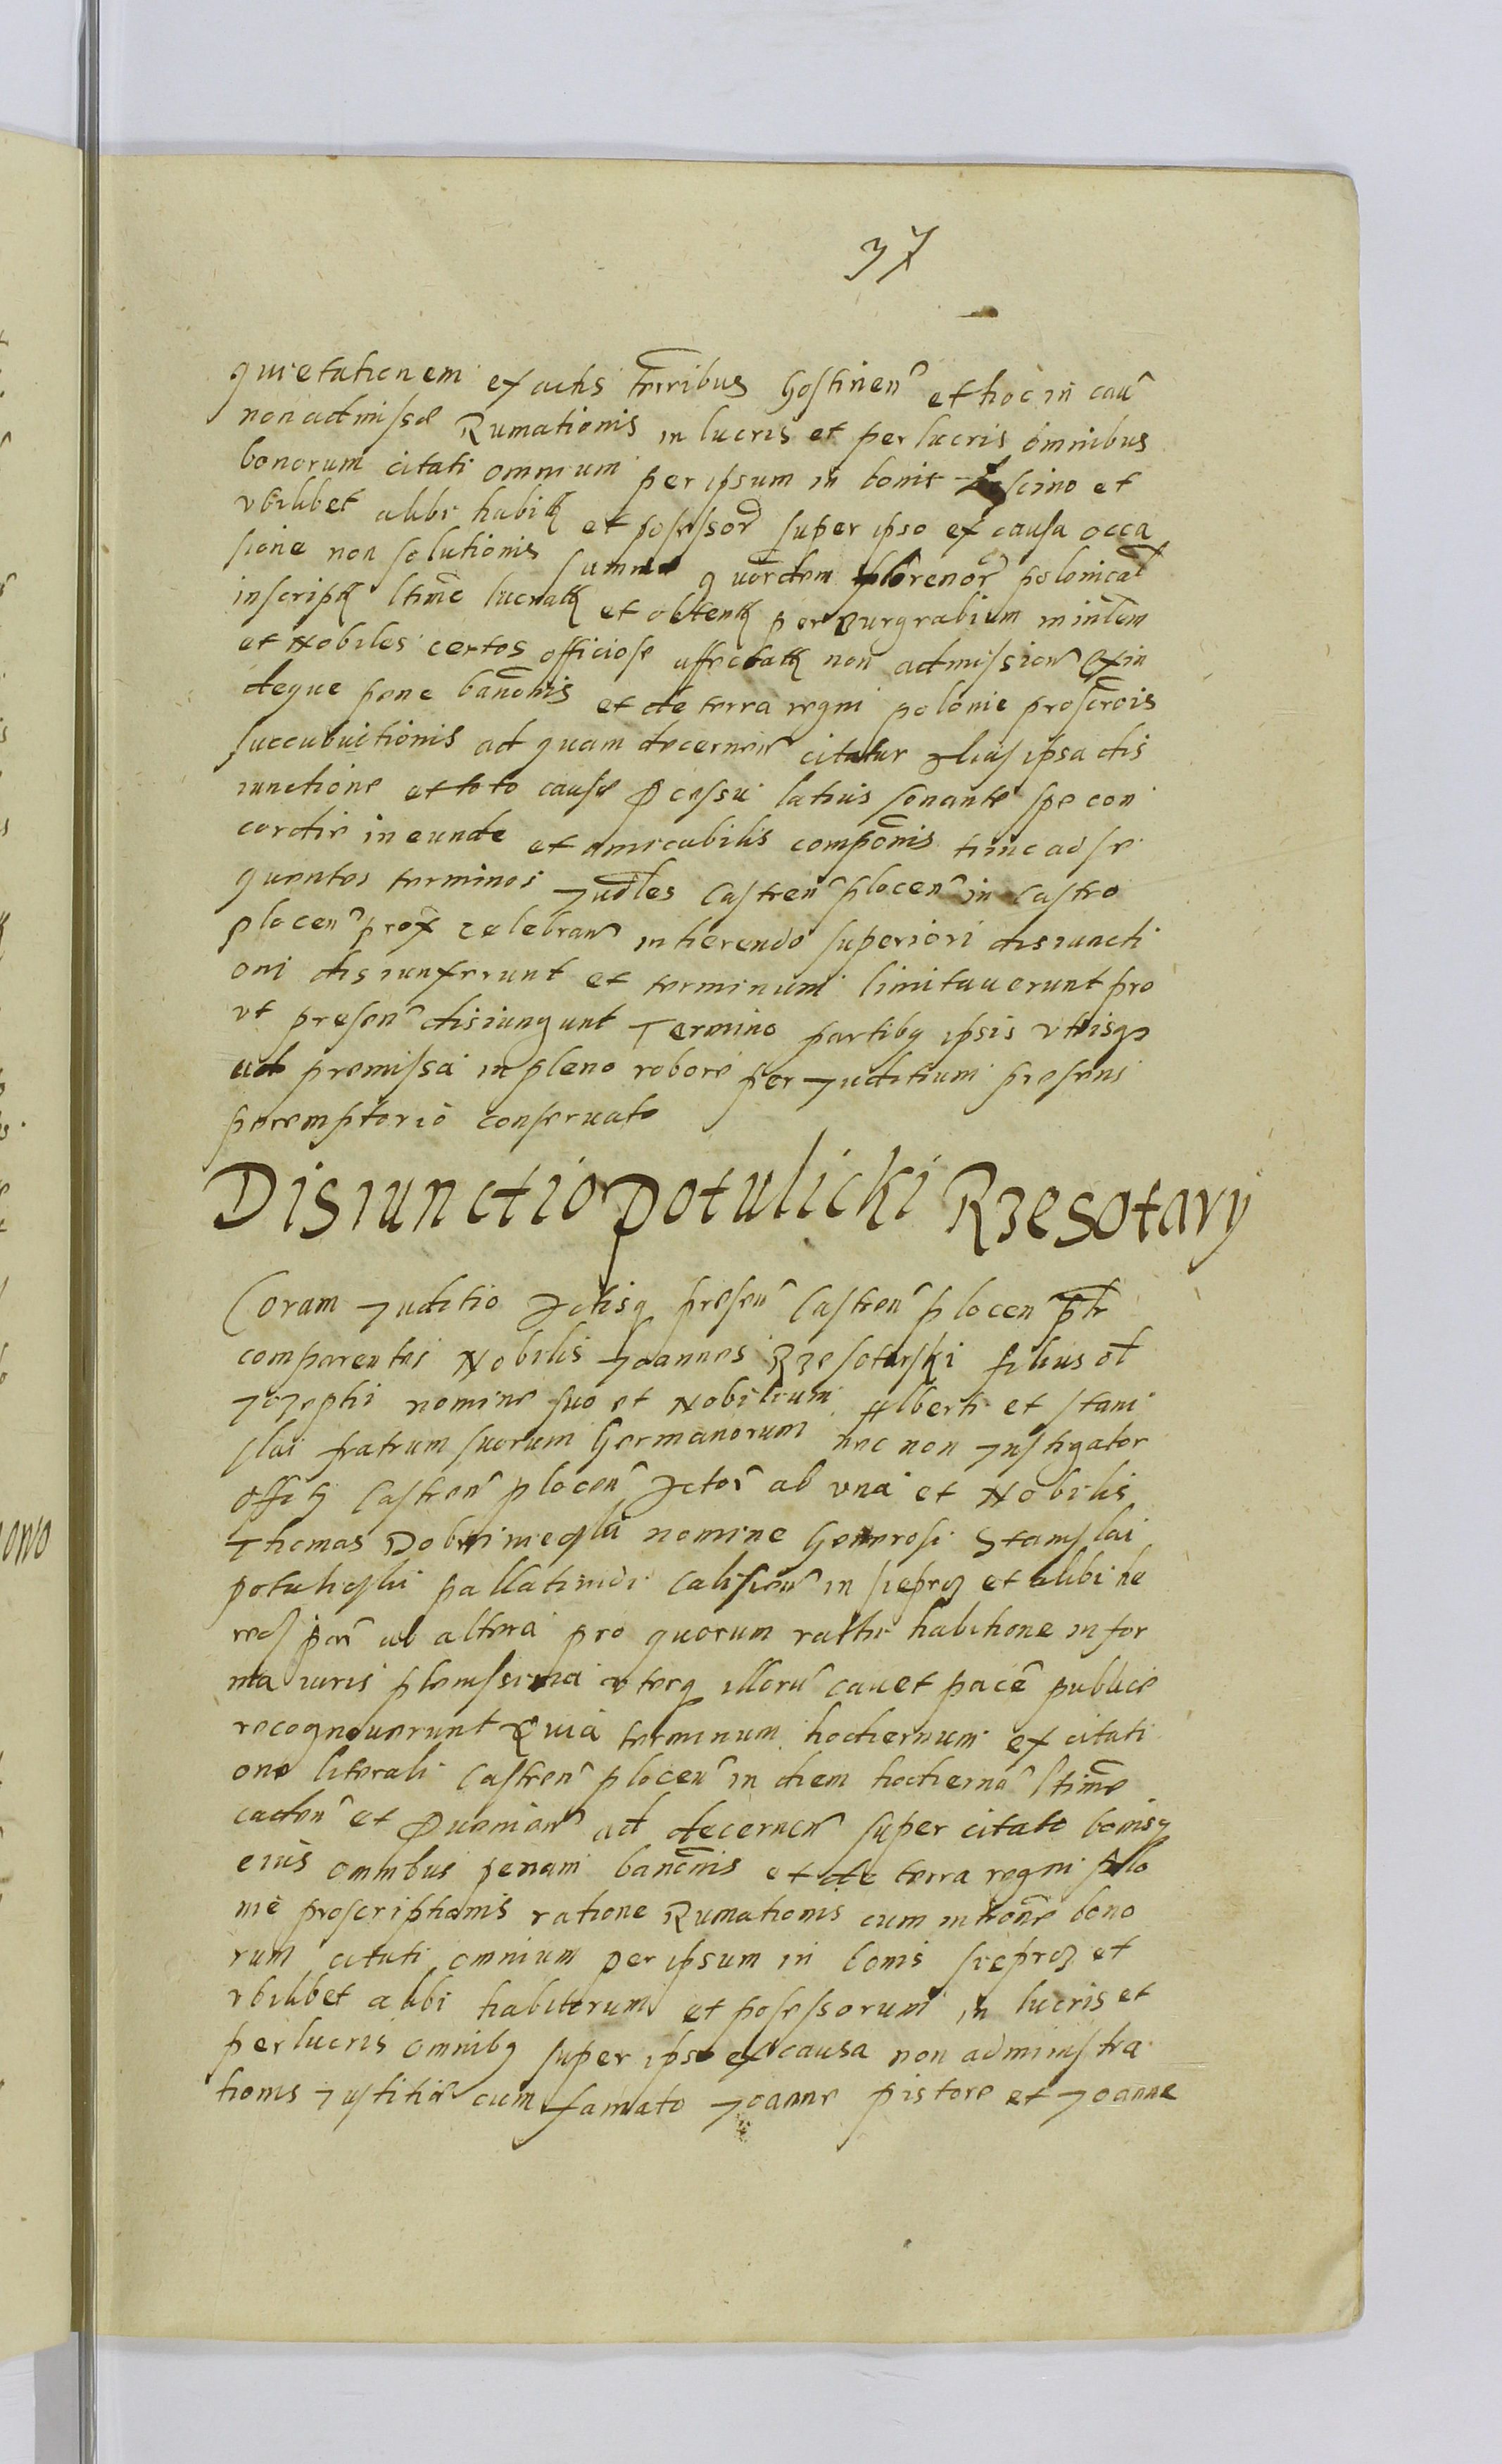 37
quietationem ex actis terribus Gostinen et hoc in cau
non admissae Rumationis in lucris et perlucris omnibus
bonorum citati omnium per ipsum in bonis et
ubilibet alibi habit et possessor super ipso ex causa occa
sione non solutionis summe quordem florenor polonical
inscript ltime lucrat et obtent per Burgrabium minlem
et Nobiles certos officiose affectat non admission exin
deque pene banonis et de terra regni polonie proscrois
succubuitionis ad quam decernen citatur Alias ipsa dis
iunctione et toto cause pcessu latius sonante spe con
cordie ineunde et amicabilis componis tunc ad se
quentes terminos Judles Castren plocen in Castro
plocen prox celebran inherendo superiori disiuncti
oni disiunxerunt et terminum limitauerunt pro
ut presen disiungunt Termino partibq ipsis utrisq
ad premissa in pleno robore per Juditium presens
peremptorio conseruato
Disiunctio Potulicki Rzesotary
Coram Juditio Actisq presen Castren plocen pltr
comparentes Nobilis Joannes Rzesotarski filius ol
Jozephi nomine suo et Nobilium Alberti et Stani
slai fratrum suorum Germanorum nec non Instigator
offitij Castren plocen Actor ab una et Nobilis
Thomas nomine Generosi Stanislai
potulicski pallatinidi Calisien in sieprcz et alibi he
red par ab altera pro quorum rathi habitione in for
ma iuris plenissima uterq illoru cauet pace publice
recognouerunt Quia terminum hodiernum ex citati
one literali Castren plocen in diem hodierna ltime
caden et Quenien ad decernen super citato bonisq
eius omnibus penam banonis et de terra regni Polo
nie proscriptionis ratione Rumationis cum introne bono
rum citati omnium per ipsum in bonis sieprcz et
ubilibet alibi habitorum et possessorum in lucris et
perlucris omnibq super ipso ex causa non administra
tionis Justitie cum famato Joanne pistore et Joanne